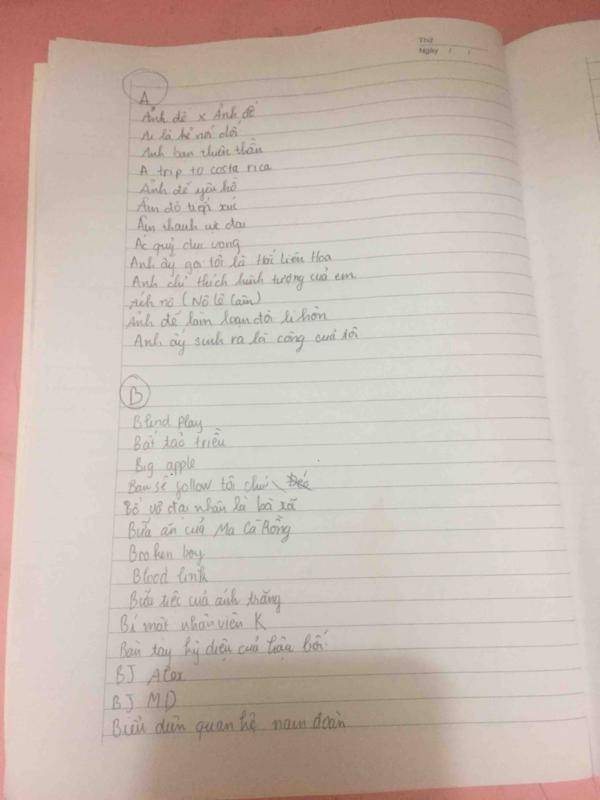 Thứ
Ngày / /
A
Ảnh đế x Ảnh đế
Ai là kẻ nói dối
Anh bạn thuần thần
A trip to costa rica
Ảnh đế yêu hồ
Âm đô tiếp xúc
Âm thanh cực đại
Ác quỷ dục vọng
Anh ấy gọi tôi là Hải Liên Hoa
Anh chỉ thích hình tượng của em
Ách nô (Nô lệ câm)
Ảnh đế làm loạn đòi li hôn
Anh ấy sinh ra là công của tôi
B
Blind play
Bát tao triều
Big apple
Bạn sẽ follow tôi chứ
Bố vợ đại nhân là bà xã
Bữa ăn của Ma Cà Rồng
Broken boy
Blood link
Bữa tiệc của ánh trăng
Bí mật nhân viên K
Bàn tay kỳ diệu của hậu bối
BJ Alex
BJ MD
Biểu diễn quan hệ nam đoàn